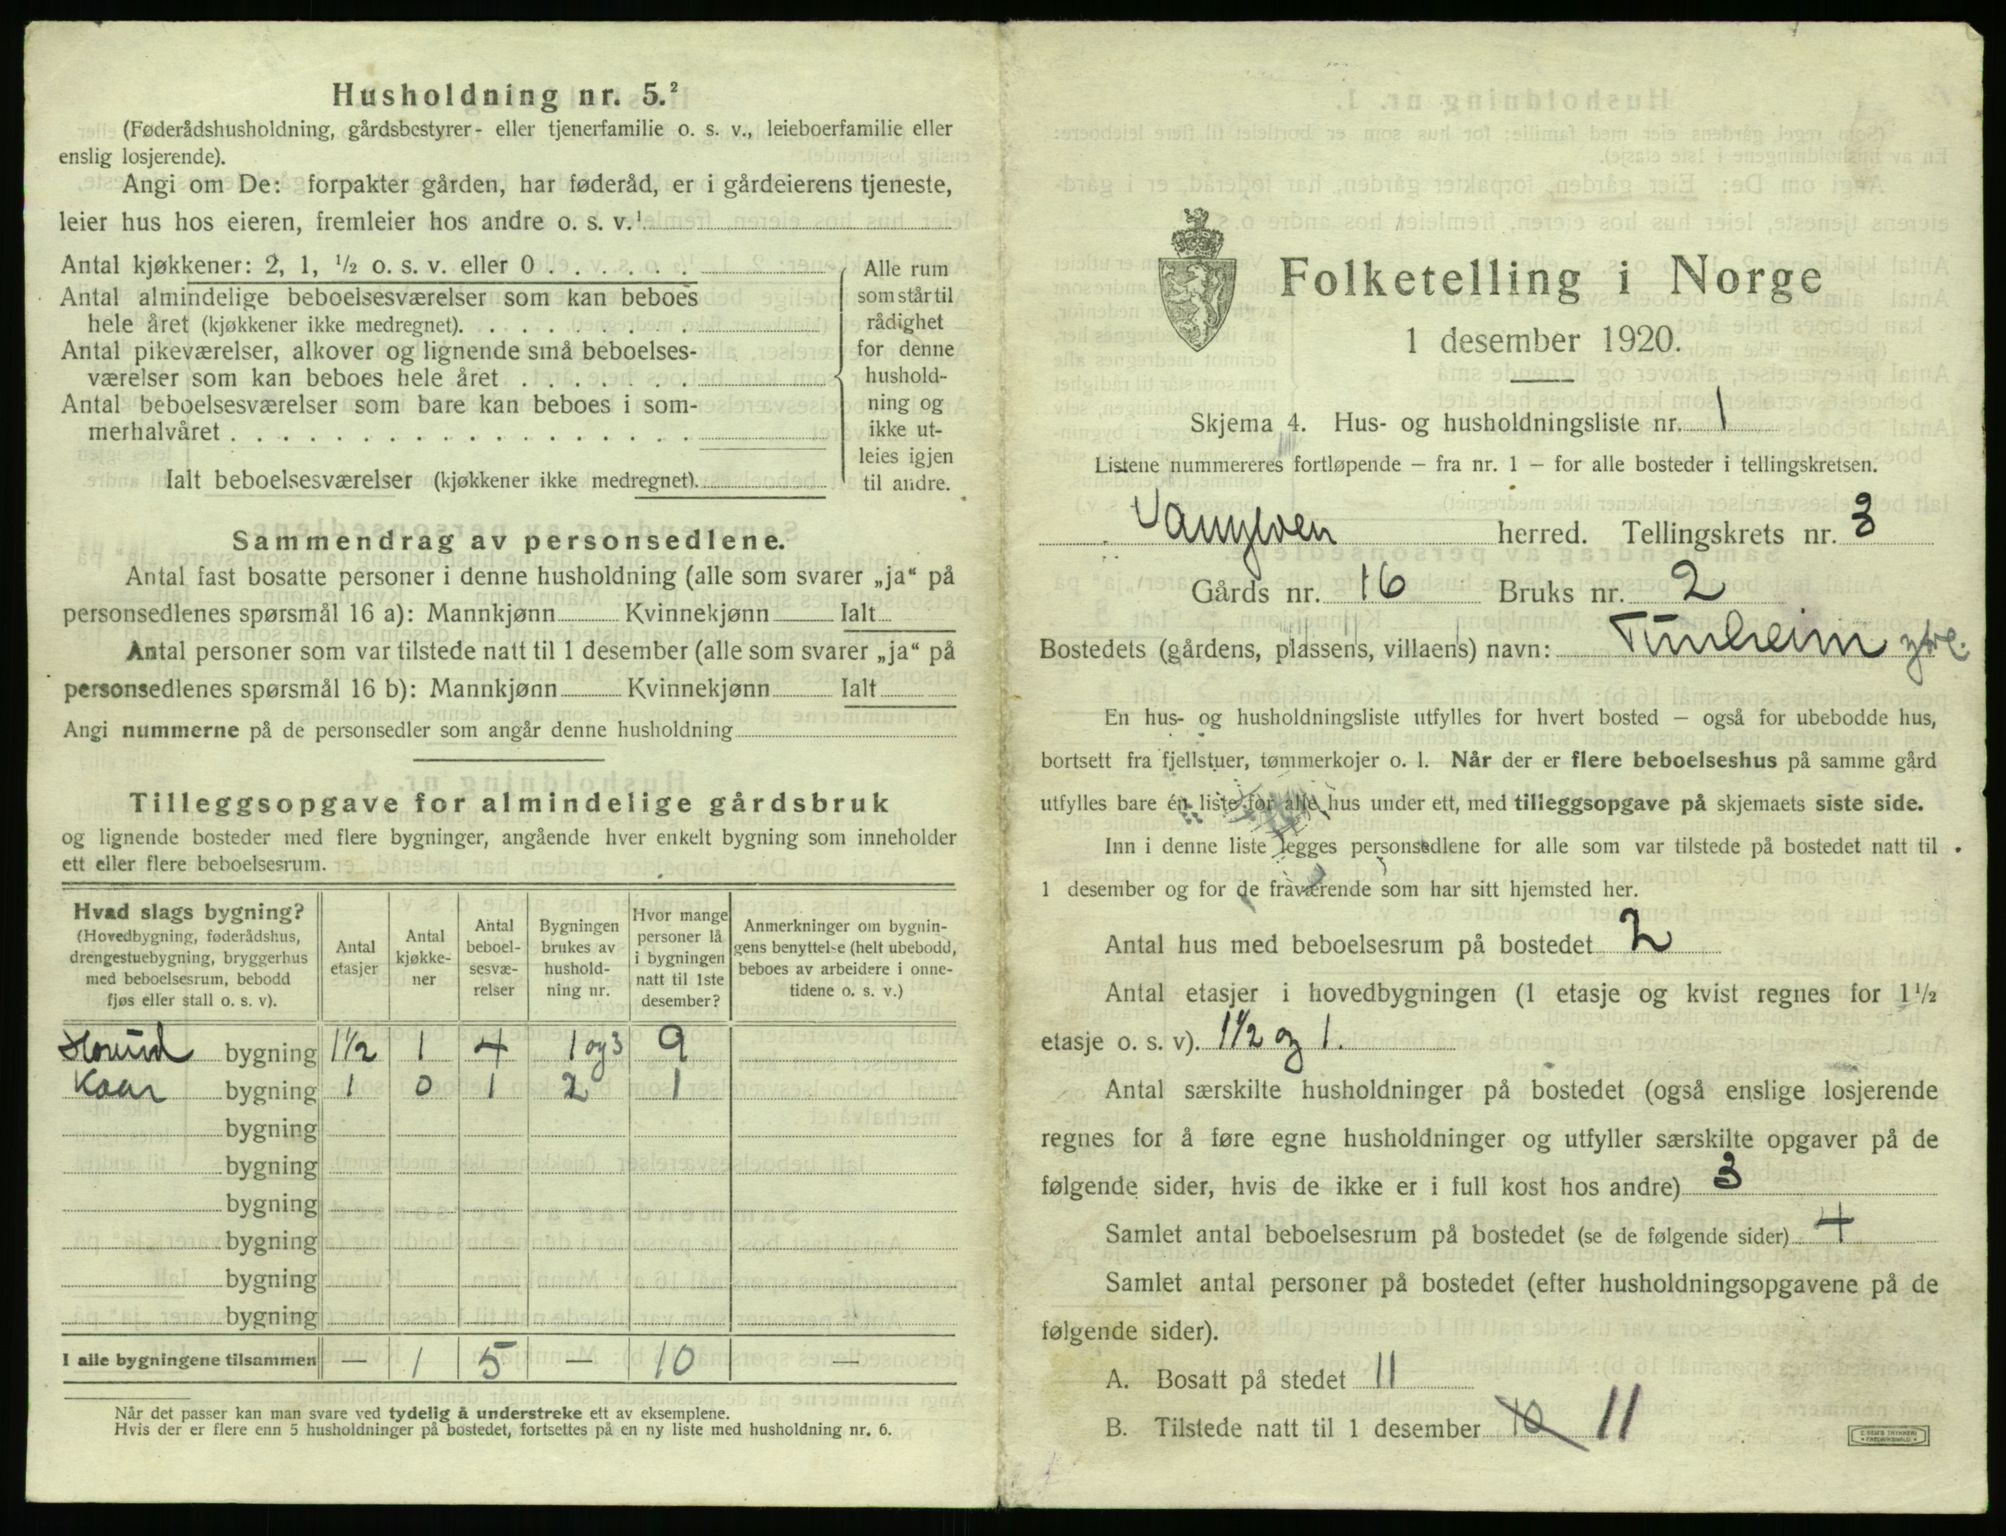 Husholdning nr. 5.²
(Føderådshusholdning, gårdsbestyrer- eller tjenerfamilie o. s. v., leieboerfamilie eller
enslig losjerende).
Angi om De: forpakter gården, har føderåd, er i gårdeierens tjeneste,
leier hus hos eieren, fremleier hos andre o. s. v.¹
Antal kjøkkener: 2, 1, ½ o. s. v. eller 0 . . . . . .
Antal almindelige beboelsesværelser som kan beboes
hele året (kjøkkener ikke medregnet). . . . . . . . .
Antal pikeværelser, alkover og lignende små beboelses-
værelser som kan beboes hele året . . . . . . .
Antal beboelsesværelser som bare kan beboes i som-
merhalvåret . . . . . . . . . . . . . . . . . .
Ialt beboelsesværelser (kjøkkener ikke medregnet).
Alle rum
som står til
rådighet
for denne
hushold-
ning og
ikke ut-
leies igjen
til andre.
Sammendrag av personsedlene.
Antal fast bosatte personer i denne husholdning (alle som svarer „ja“ på
personsedlenes spørsmål 16 a): Mannkjønn Kvinnekjønn Ialt
Antal personer som var tilstede natt til 1 desember (alle som svarer „ja“ på
personsedlenes spørsmål 16 b): Mannkjønn Kvinnekjønn Ialt
Angi nummerne på de personsedler som angår denne husholdning
Tilleggsopgave for almindelige gårdsbruk
og lignende bosteder med flere bygninger, angående hver enkelt bygning som inneholder
ett eller flere beboelsesrum.
Hvad slags bygning?
(Hovedbygning, føderådshus,
drengestuebygning, bryggerhus
med beboelsesrum, bebodd
fjøs eller stall o. s. v).
Antal
etasjer
Antal
kjøkke-
ner
Antal
beboel-
sesvæ-
relser
Bygningen
brukes av
hushold-
ning nr.
Hvor mange
personer lå
i bygningen
natt til 1ste
desember?
Anmerkninger om bygnin-
gens benyttelse (helt ubebodd,
beboes av arbeidere i onne-
tidene o. s. v.)
bygning 1½ 1 4 1 og 3 9
Kaar bygning 1 0 1 2 1
bygning
bygning
bygning
bygning
bygning
bygning
I alle bygningene tilsammen — 1 5 — 10 —
Når det passer kan man svare ved tydelig å understreke ett av eksemplene.
Hvis der er flere enn 5 husholdninger på bostedet, fortsettes på en ny liste med husholdning nr. 6.
Folketelling i Norge
1 desember 1920.
Skjema 4. Hus- og husholdningsliste nr. 1
Listene nummereres fortløpende – fra nr. 1 – for alle bosteder i tellingskretsen.
Vanylven herred. Tellingskrets nr. 3
Gårds nr. 16 Bruks nr. 2
Bostedets (gårdens, plassens, villaens) navn: Tunheim ytre.
En hus- og husholdningsliste utfylles for hvert bosted – også for ubebodde hus,
bortsett fra fjellstuer, tømmerkojer o. l. Når der er flere beboelseshus på samme gård
utfylles bare én liste for alle hus under ett, med tilleggsopgave på skjemaets siste side.
Inn i denne liste legges personsedlene for alle som var tilstede på bostedet natt til
1 desember og for de fraværende som har sitt hjemsted her.
Antal hus med beboelsesrum på bostedet 2
Antal etasjer i hovedbygningen (1 etasje og kvist regnes for 1½
etasje o. s. v). 1½ og 1.
Antal særskilte husholdninger på bostedet (også enslige losjerende
regnes for å føre egne husholdninger og utfyller særskilte opgaver på de
følgende sider, hvis de ikke er i full kost hos andre) 3
Samlet antal beboelsesrum på bostedet (se de følgende sider) 4
Samlet antal personer på bostedet (efter husholdningsopgavene på de
følgende sider).
A. Bosatt på stedet 11
B. Tilstede natt til 1 desember 10 11